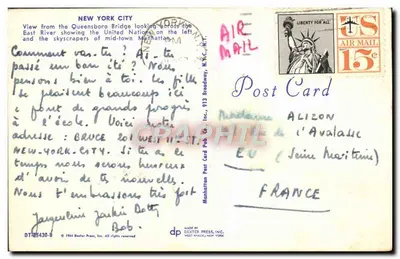 NEW YORK CITY
View from the Queensboro Bridge looking across the
East River showing the United Nations on the left,
and the skyscrapers of mid-town Manhattan.
Comment vas-tu ? As-tu
passé un bon été ? Nous
pensons bien à toi. Les filles
se plaisent beaucoup ici
font de grands progrès
à l'école. Voici notre
adresse : BRUCE 201 WEST 11 - ST.
NEW-YORK-CITY. Si tu as le
temps nous serons heureux
d'avoir de tes nouvelles.
Nous t'embrassons très fort
Jacqueline Jackie Betty
Bob.
DT-
© 1964 Dexter Press, Inc. All rights reserved.
Manhattan Post Card Pub Co. Inc., 913 Broadway, N.Y.C. N.Y.
dp
MADE BY
DEXTER PRESS, INC.
WEST NYACK, NEW YORK
AIR
MAIL
LIBERTY FOR ALL
US
AIR MAIL
15¢
Post Card
Madame ALIZON
l'Avalasse
EU (Seine Maritime)
FRANCE
CPAPHIL